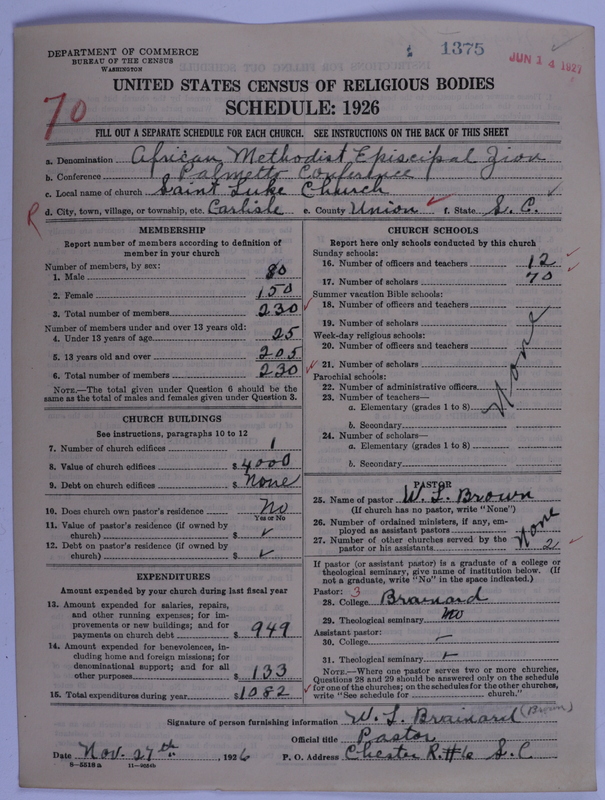 DEPARTMENT OF COMMERCE
BUREAU OF THE CENSUS
WASHINGTON
1375
JUN 14 1927
UNITED STATES CENSUS OF RELIGIOUS BODIES
SCHEDULE: 1926
70
FILL OUT A SEPARATE SCHEDULE FOR EACH CHURCH. SEE INSTRUCTIONS ON THE BACK OF THIS SHEET
a. Denomination African Methodist Episcipal Zion
b. Conference Palmetto Conference
c. Local name of church Saint Luke Church
R d. City, town, village, or township, etc. Carlisle e. County Union f. State S. C.
MEMBERSHIP
Report number of members according to definition of
member in your church
Number of members, by sex:
1. Male 80
2. Female 150
3. Total number of members 230
Number of members under and over 13 years old:
4. Under 13 years of age 25
5. 13 years old and over 205
6. Total number of members 230
NOTE.—The total given under Question 6 should be the
same as the total of males and females given under Question 3.
CHURCH BUILDINGS
See instructions, paragraphs 10 to 12
7. Number of church edifices 1
8. Value of church edifices $ 4000
9. Debt on church edifices $ None
10. Does church own pastor's residence No
Yes or No
11. Value of pastor's residence (if owned by
church) $ ✓
12. Debt on pastor's residence (if owned by
church) $ ✓
EXPENDITURES
Amount expended by your church during last fiscal year
13. Amount expended for salaries, repairs,
and other running expenses; for im-
provements or new buildings; and for
payments on church debt $ 949
14. Amount expended for benevolences, in-
cluding home and foreign missions; for
denominational support; and for all
other purposes $ 133
15. Total expenditures during year $ 1082
CHURCH SCHOOLS
Report here only schools conducted by this church
Sunday schools:
16. Number of officers and teachers 12
17. Number of scholars 70
Summer vacation Bible schools:
18. Number of officers and teachers
19. Number of scholars
Week-day religious schools:
20. Number of officers and teachers
21. Number of scholars
Parochial schools:
22. Number of administrative officers
23. Number of teachers—
a. Elementary (grades 1 to 8)
b. Secondary
24. Number of scholars—
a. Elementary (grades 1 to 8)
b. Secondary
None
PASTOR
25. Name of pastor W. L. Brown
(If church has no pastor, write "None")
26. Number of ordained ministers, if any, em-
ployed as assistant pastors None
27. Number of other churches served by the
pastor or his assistants 2
If pastor (or assistant pastor) is a graduate of a college or
theological seminary, give name of institution below. (If
not a graduate, write "No" in the space indicated.)
Pastor: 3
28. College Brainard
29. Theological seminary No
Assistant pastor:
30. College
31. Theological seminary
NOTE.—Where one pastor serves two or more churches,
Questions 28 and 29 should be answered only on the schedule
for one of the churches; on the schedules for the other churches,
write "See schedule for church."
Signature of person furnishing information W. L. Brainard (Brown)
Official title Pastor
Date Nov. 27th, 1926 P. O. Address Chester R. #6 S. C.
8—5518a 11—9024b